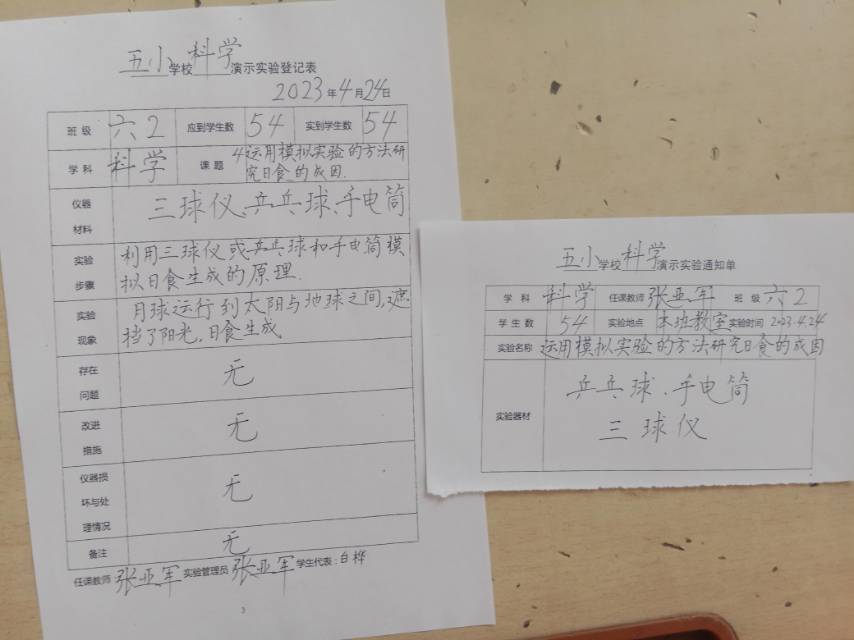 五小学校科学演示实验登记表
2023年4月24日
班级 六2 应到学生数 54 实到学生数 54
学科 科学 课题 4运用模拟实验的方法研
究日食的成因.
仪器
材料
三球仪、乒乓球、手电筒
实验
步骤
利用三球仪或乒乓球和手电筒模
拟日食生成的原理.
实验
现象
月球运行到太阳与地球之间,遮
挡了阳光,日食生成
存在
问题
无
改进
措施
无
仪器损
坏与处
理情况
无
备注 无
任课教师 张亚军 实验管理员 张亚军 学生代表:白桦
五小学校科学演示实验通知单
学科 科学 任课教师 张亚军 班级 六2
学生数 54 实验地点 本班教室 实验时间 2023.4.24
实验名称 运用模拟实验的方法研究日食的成因
实验器材
乒乓球、手电筒
三球仪